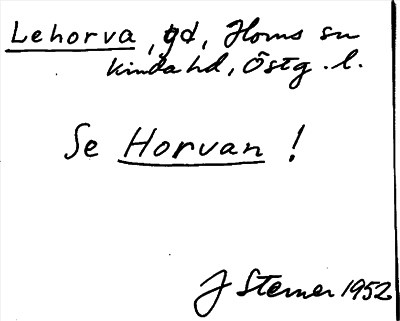 Lehorva, gd, Horns sn
Kinda hd, Östg. l.
Se Horvan!
J Sterner 1952